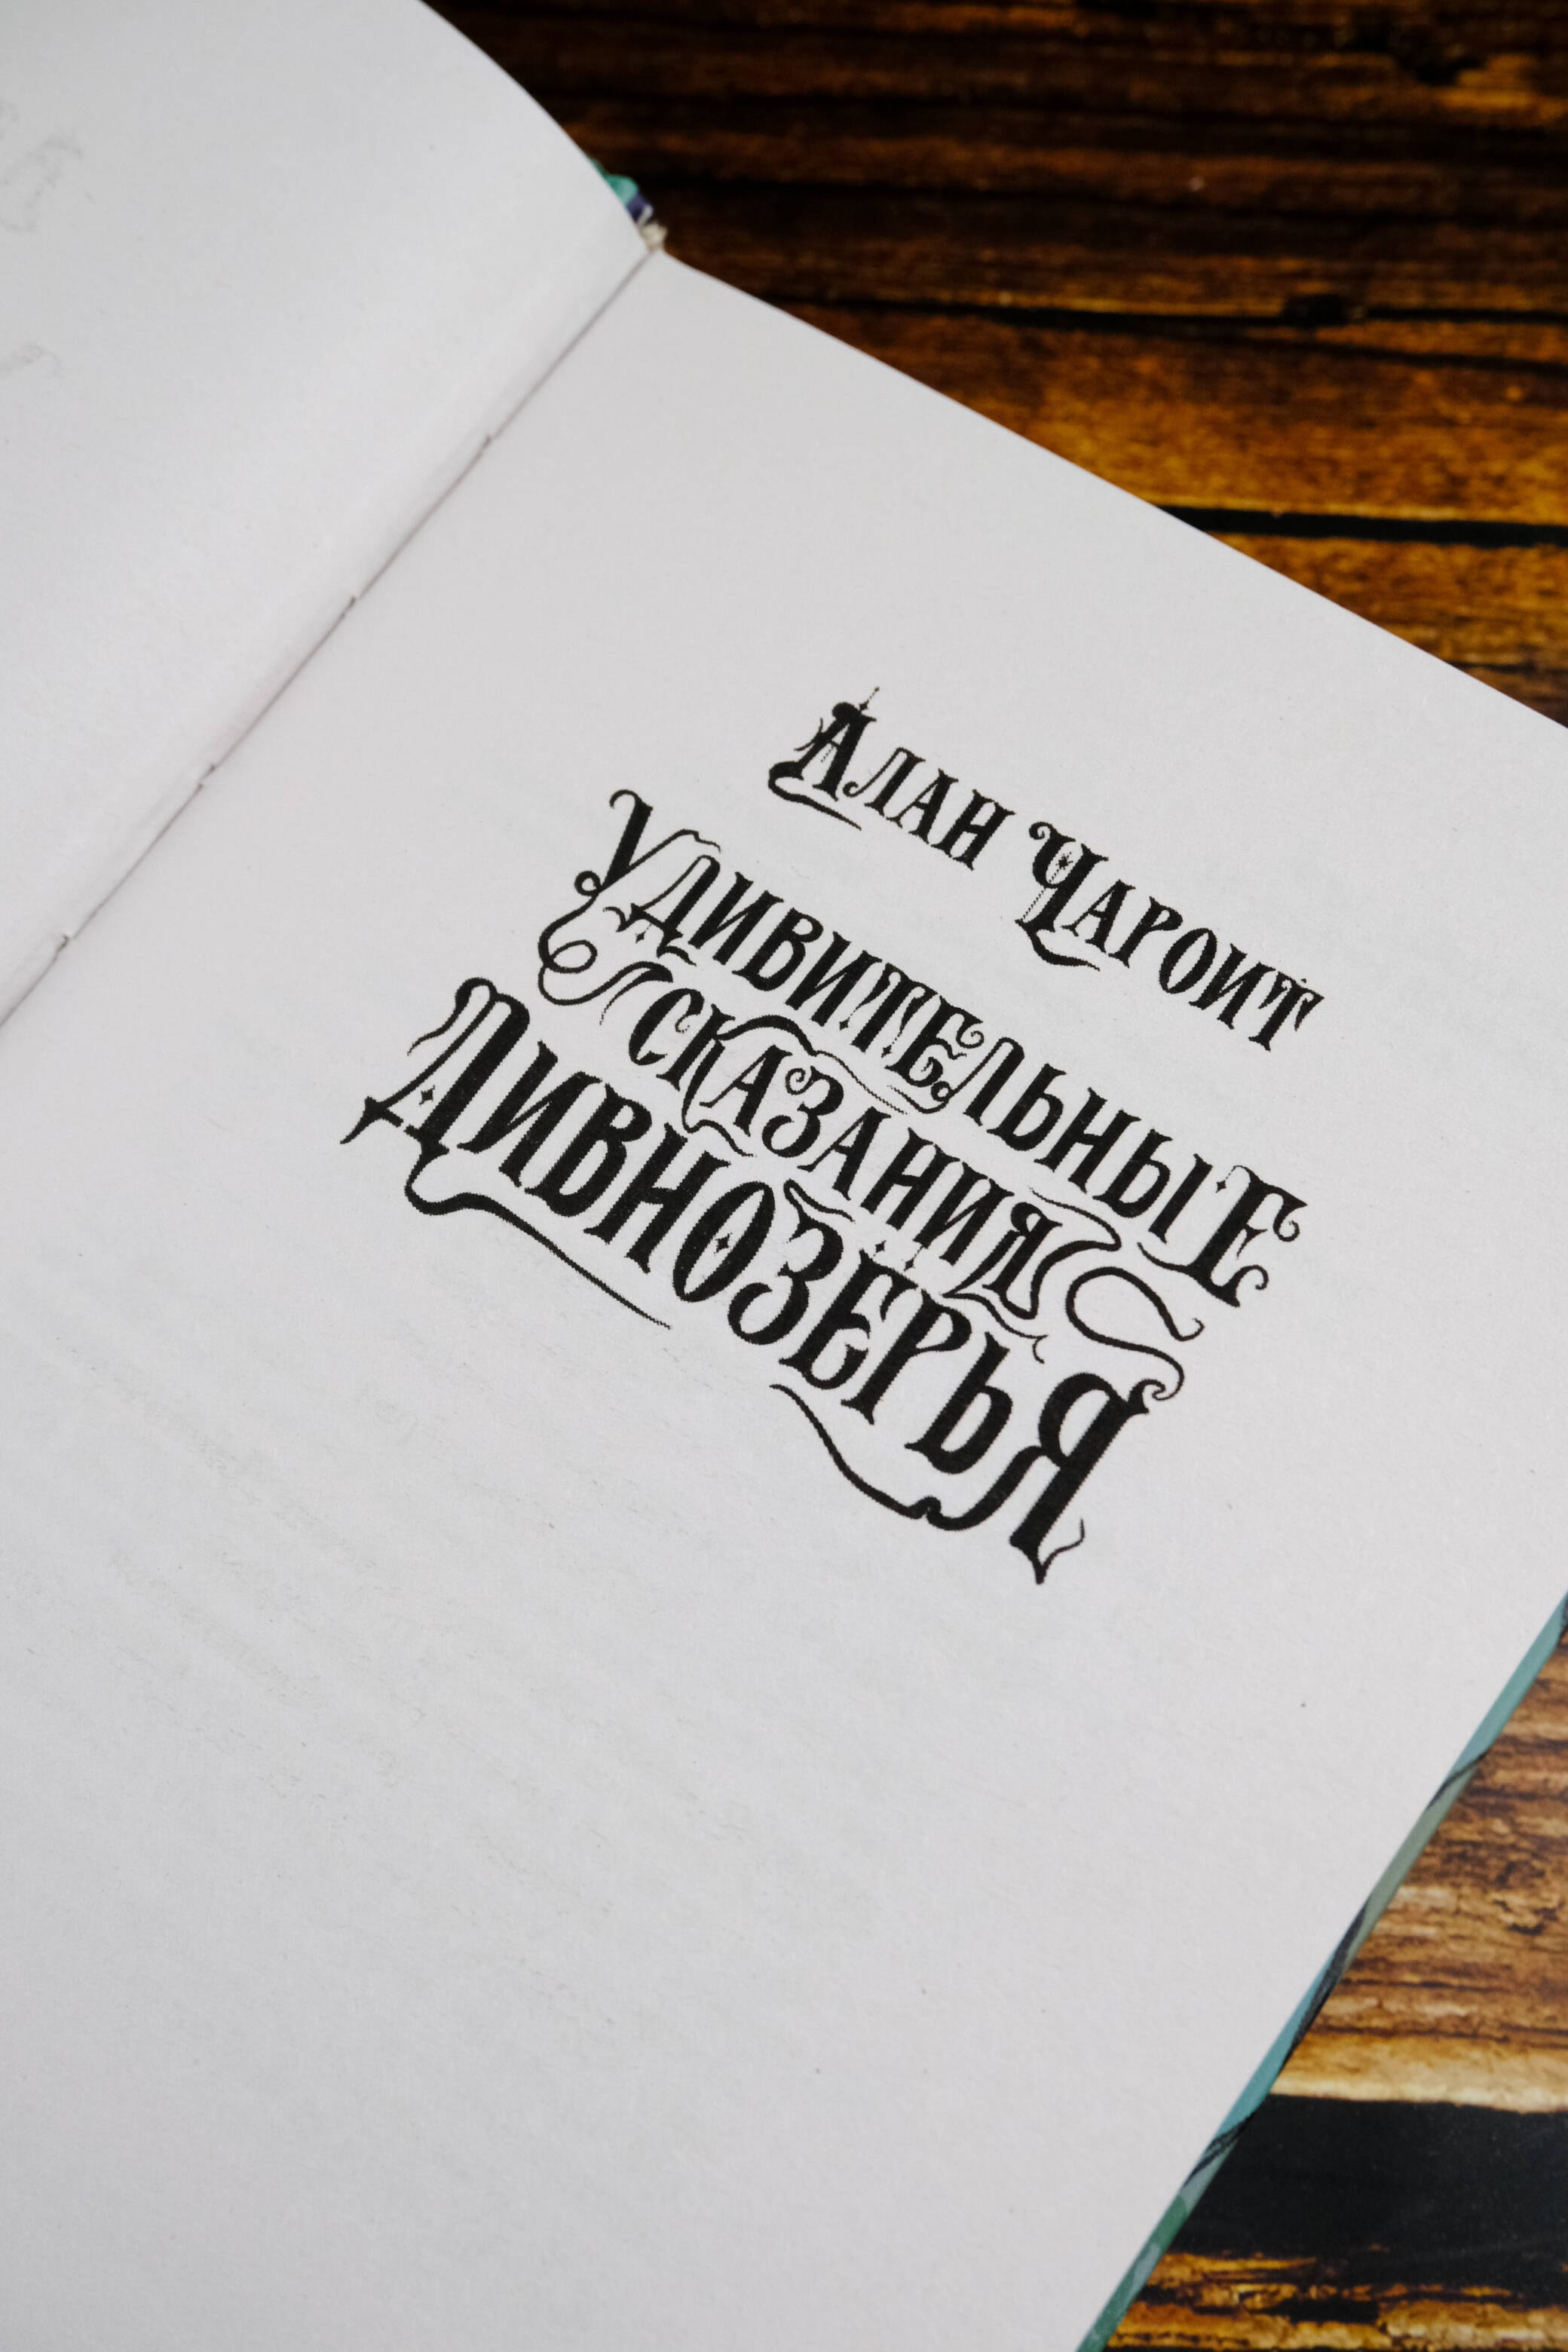 Алан Чароит
Удивительные
сказания
Дивнозерья